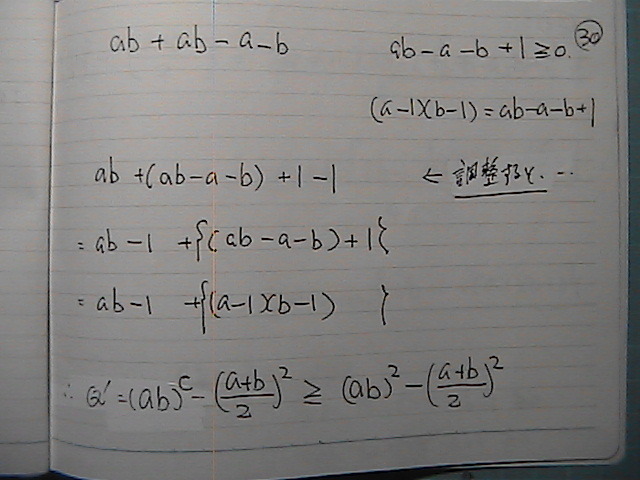 ab + ab - a - b    ab - a - b + 1 ≧ 0.    ㉚
(a-1)(b-1) = ab-a-b+1
ab + (ab - a - b) + 1 - 1    ← 調整すると…
= ab - 1 + {(ab - a - b) + 1}
= ab - 1 + {(a-1)(b-1)    }
∴ Q' = (ab)^c - ((a+b)/2)^2 ≧ (ab)^2 - ((a+b)/2)^2